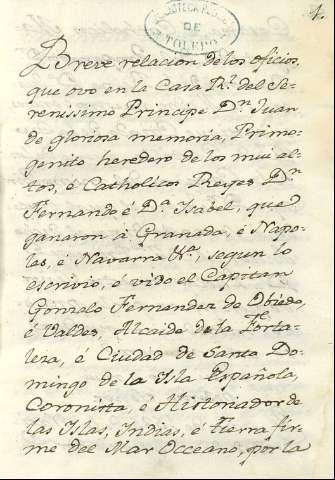 BIBLIOTECA PUB.
DE
TOLEDO
1.
Breve relacion de los oficios,
que ovo en la Casa R.l del Se-
renissimo Principe D.n Juan
de gloriosa memoria, Primo-
genito heredero de los mui al-
tos, é Catholicos Reyes D.n
Fernando é D.a Isabel, que
ganaron à Granada, é Napo-
les, é Navarra &.a, segun lo
escrivio, é vido el Capitan
Gonzalo Fernandez de Obiedo,
é Valdes, Alcaide de la Forta-
leza, é Ciudad de Santo Do-
mingo de la Isla Española,
Coronista, é Historiador de
las Islas, Indias, é Tierra fir-
me del Mar Occeano, por la